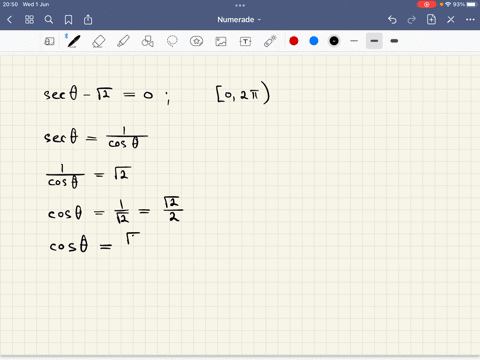 20:50 Wed 1 Jun
93%
Numerade
secθ - √2 = 0 ; [0, 2π)
secθ = 1/cosθ
1/cosθ = √2
cosθ = 1/√2 = √2/2
cosθ = √